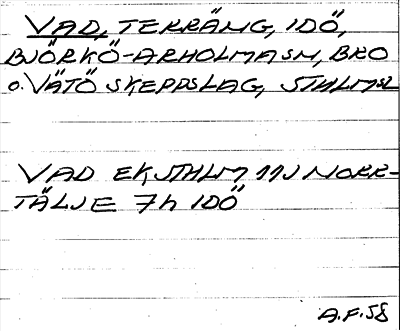 VAD, TERRÄNG, IDÖ,
BJÖRKÖ-ARHOLMASN, BRO
o. VÄTÖ SKEPPSLAG, STHLMSL
VAD EKSTHLM 11J NORR-
TÄLJE 7h IDÖ
A.F.58